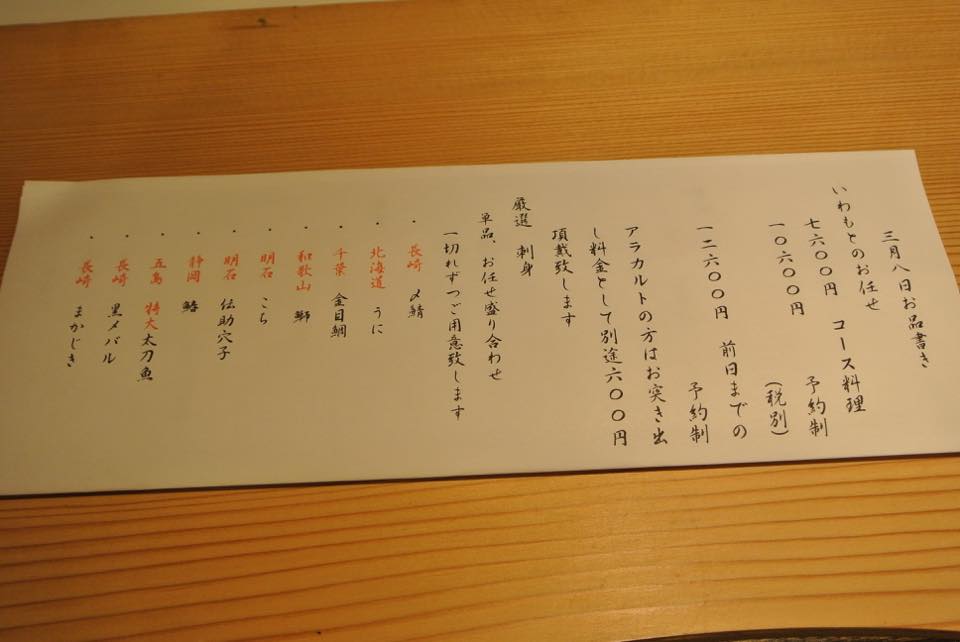 三月八日お品書き
いわもとのお任せ コース料理
七六〇〇円 予約制
一〇六〇〇円 (税別)
一二六〇〇円 前日までの
予約制
アラカルトの方はお突き出
し料金として別途六〇〇円
頂戴致します
厳選 刺身
単品、お任せ盛り合わせ
一切れずつご用意致します
・ 長崎 〆鯖
・ 北海道 うに
・ 千葉 金目鯛
・ 和歌山 鰤
・ 明石 こち
・ 明石 伝助穴子
・ 静岡 鰆
・ 五島 特大太刀魚
・ 長崎 黒メバル
・ 長崎 まかじき